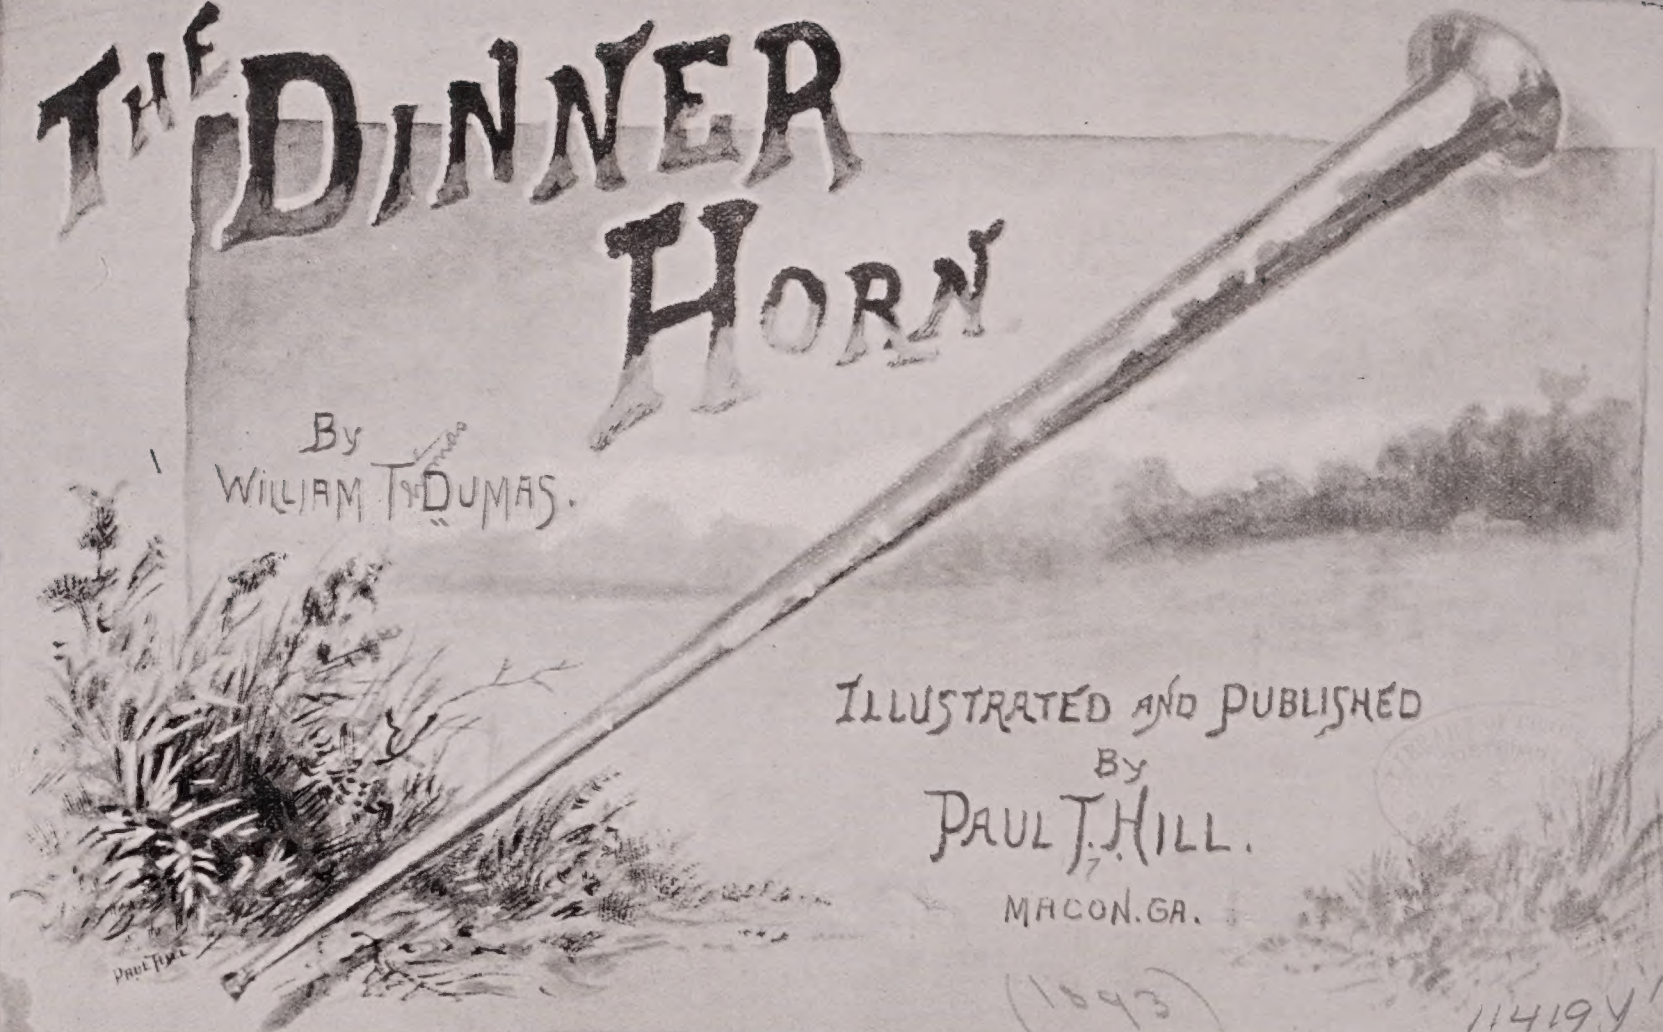 THE DINNER
HORN
By
WILLIAM T. DUMAS.
ILLUSTRATED AND PUBLISHED
By
PAUL T. HILL.
7
MACON. GA.
PAUL T HILL
(1893)
11419Y'